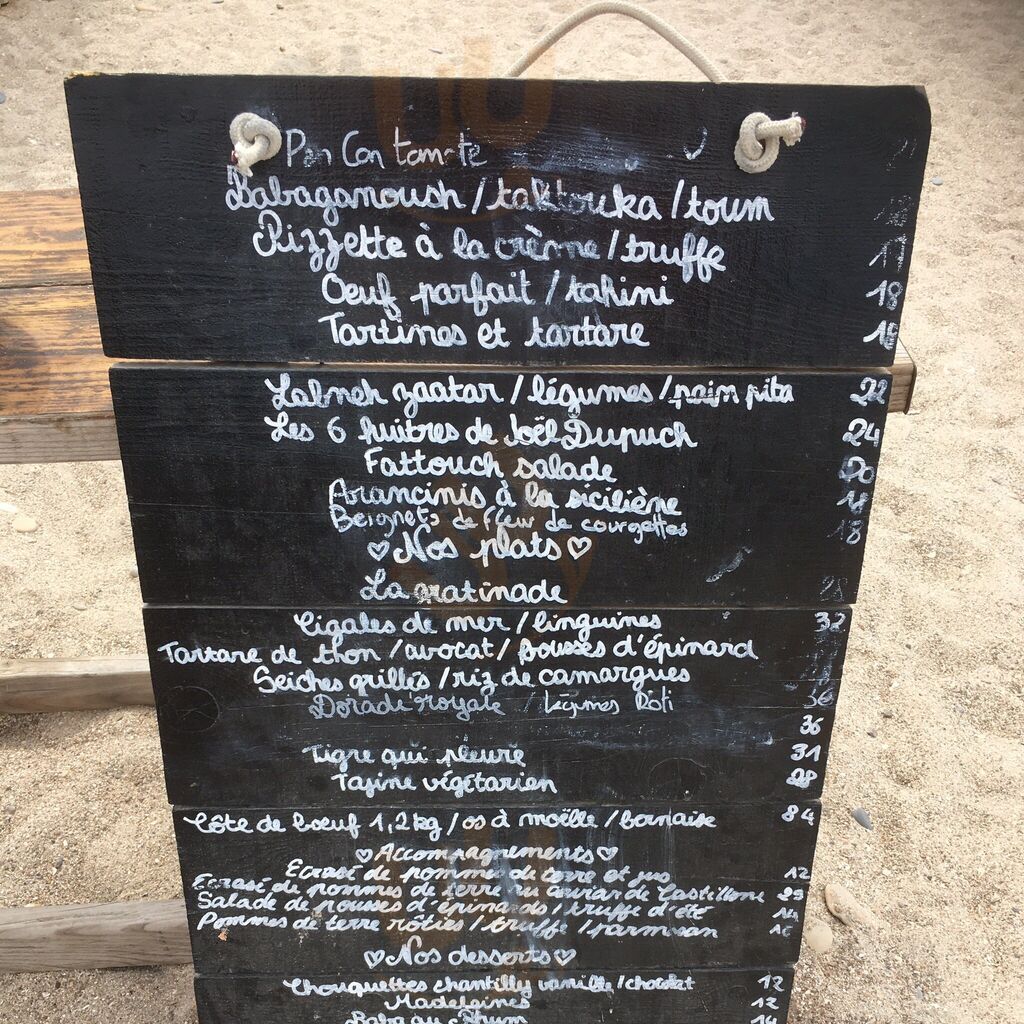 Pan Con tomate
Babaganoush / taktouka / toum
Pizzette à la crème / truffe 17
Oeuf parfait / tahini 18
Tartines et tartare
Labneh zaatar / légumes / pain pita 22
Les 6 huitres de Joël Dupuch 24
Fattouch salade 20
Arancinis à la siciliène
Beignets de fleur de courgettes 18
♡ Nos plats ♡
La gratinade 28
Cigales de mer / linguines 32
Tartare de thon / avocat / pousses d'épinard
Seiches grillés / riz de camargues
Dorade royale / légumes Rôti 36
36
Tigre qui pleure 31
Tajine végétarien 28
Côte de boeuf 1,2kg / os à moëlle / bernaise 84
♡ Accompagnements ♡
Ecrasé de pommes de terre et jus 12
Ecrasé de pommes de terre au caviar de Castillone 29
Salade de pousses d'épinards / truffe d'été 14
Pommes de terre rôties / truffe / parmesan
♡ Nos desserts ♡
Chouquettes chantilly vanille / chocolat 12
Madelaines 12
Baba au Rhum 14